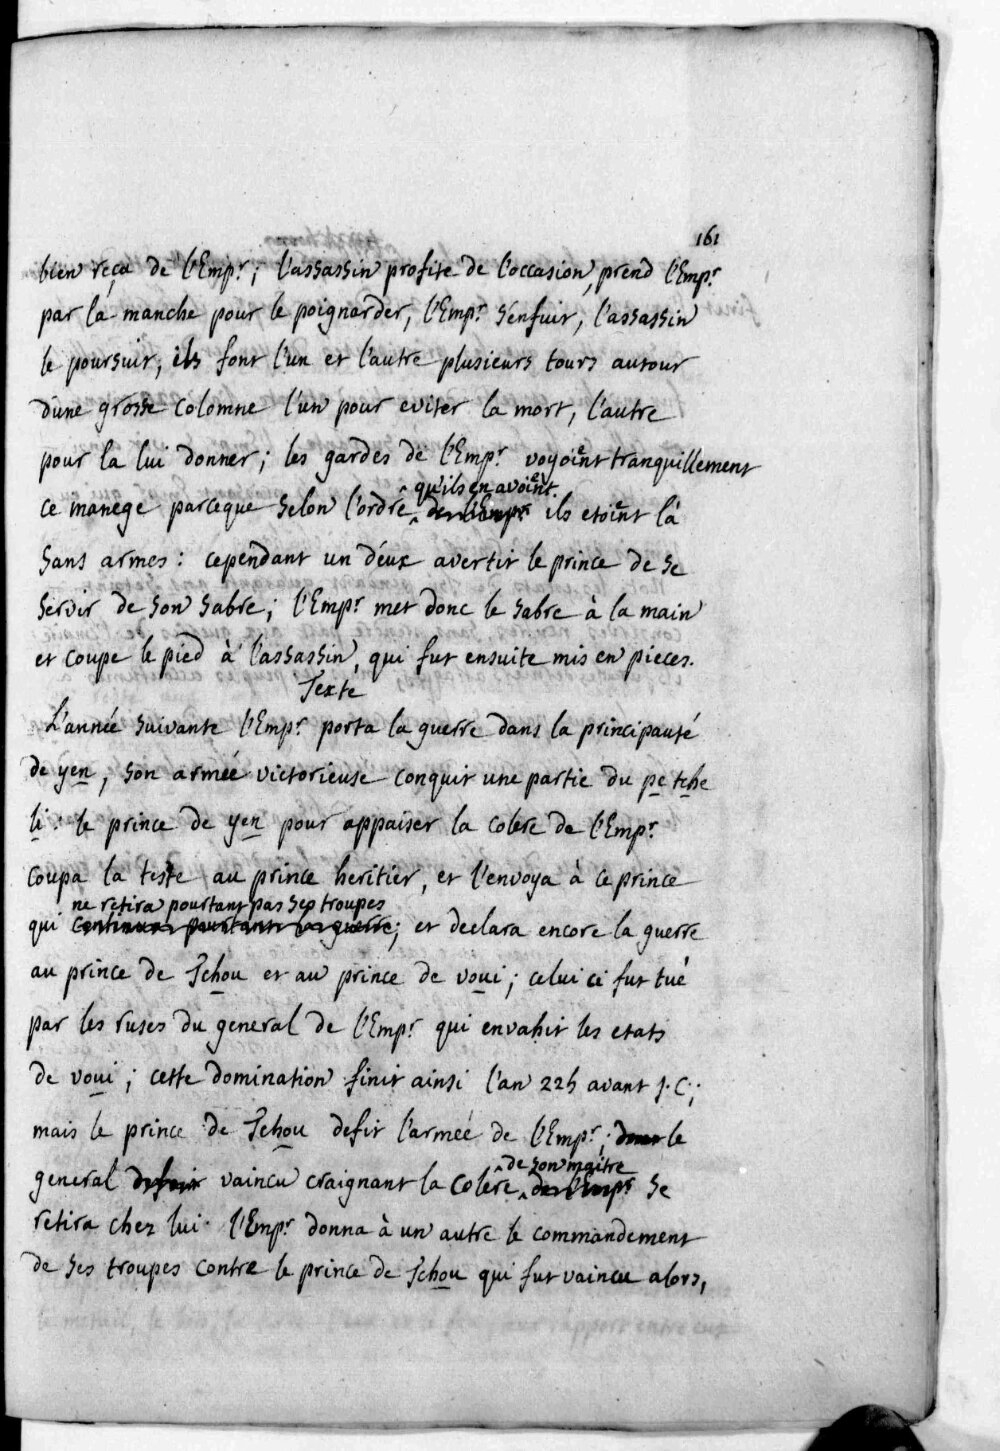 161
bien reçu de l'Emp.r; l'assassin profite de l'occasion, prend l'Emp.r
par la manche pour le poignarder, l'Emp.r s'enfuit, l'assassin
le poursuit; ils font l'un et l'autre plusieurs tours autour
d'une grosse colomne l'un pour eviter la mort, l'autre
pour la lui donner; les gardes de l'Emp.r voyoient tranquillement
qu'ils en avoient.
ce manege parceque selon l'ordre de l'Emp.r ils etoient là
sans armes: cependant un d'eux avertit le prince de se
servir de son sabre; l'Emp.r met donc le sabre à la main
et coupe le pied à l'assassin, qui fut ensuite mis en pieces.
Texte
L'année suivante l'Emp.r porta la guerre dans la principauté
de yen, son armée victorieuse conquit une partie du pe tche
li: le prince de yen pour appaiser la colere de l'Emp.r
coupa la teste au prince heritier, et l'envoya à ce prince
ne retira pourtant pas ses troupes
qui continua pourtant la guerre; et declara encore la guerre
au prince de Tchou et au prince de voui; celui ci fut tué
par les ruses du general de l'Emp.r qui envahit les etats
de voui; cette domination finit ainsi l'an 225 avant J.C.;
mais le prince de Tchou defit l'armée de l'Emp.r; le
de son maitre
general vaincu craignant la colere de l'Emp.r se
retira chez lui. l'Emp.r donna à un autre le commandement
de ses troupes contre le prince de Tchou qui fut vaincu alors,